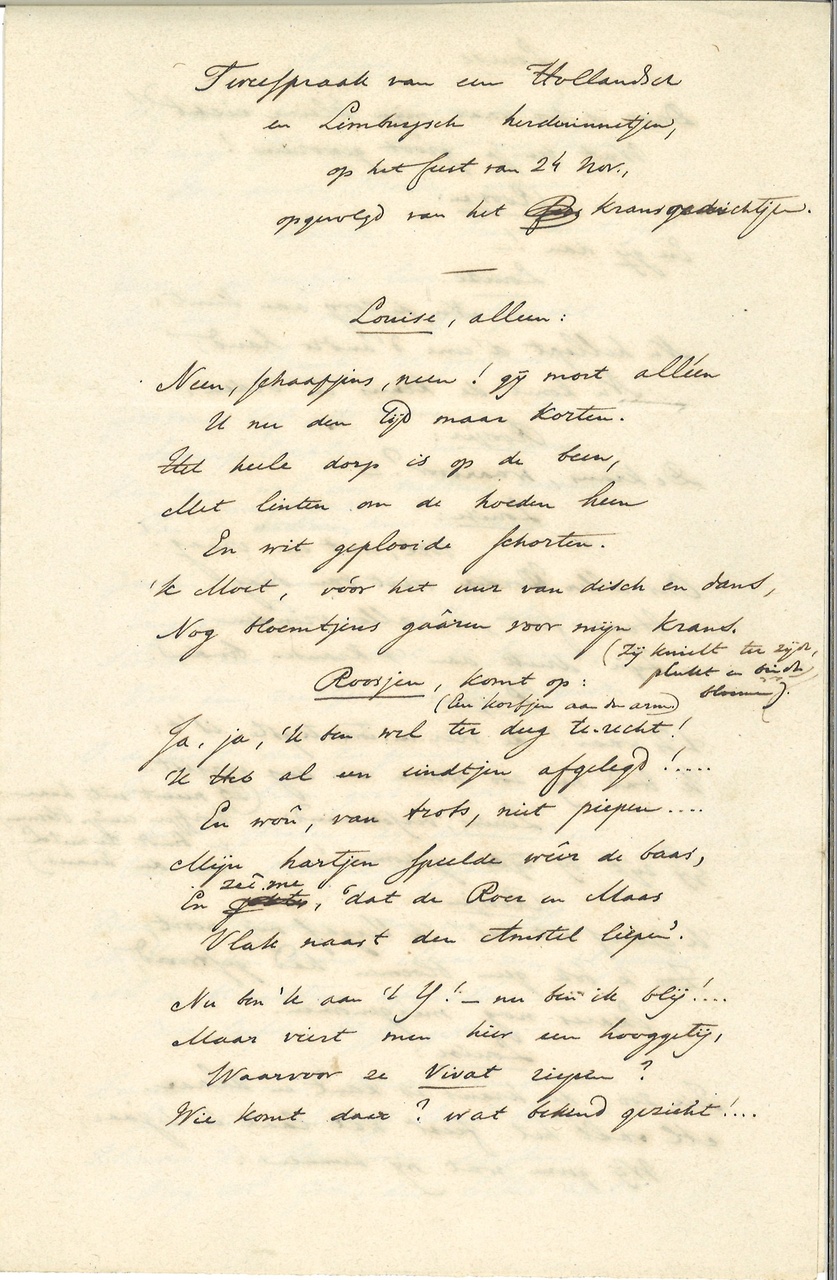 Tweespraak van een Hollandsch
en Limburgsch herderinnetjen,
op het feest van 24 Nov.,
opgevolgd van het Kransgedichtjen.
Louise, alleen:
Neen, schaapjens, neen! gij moet alléen
U nu den tijd maar korten.
Het heele dorp is op de been,
Met linten om de hoeden heen
En wit geplooide schorten.
'k Moet, vóor het uur van disch en dans,
Nog bloemtjens gaâren voor mijn krans.
(Zij knielt ter zijde,
plukt en bindt
bloemen).
Roosjen, komt op:
(Een korfjen aan den arm)
Ja, ja, 'k ben wel ter deeg te-recht!
'k Heb al een eindtjen afgelegd!....
En woû, van trots, niet piepen....
Mijn hartjen speelde wéer de baas,
En zeî me, 'dat de Roer en Maas
Vlak naast den Amstel liepen'.
Nu ben 'k aan 't Y! — nu ben ik blij!...
Maar viert men hier een hooggetij,
Waarvoor ze Vivat riepen?
Wie komt daar? wat bekend gezicht!...